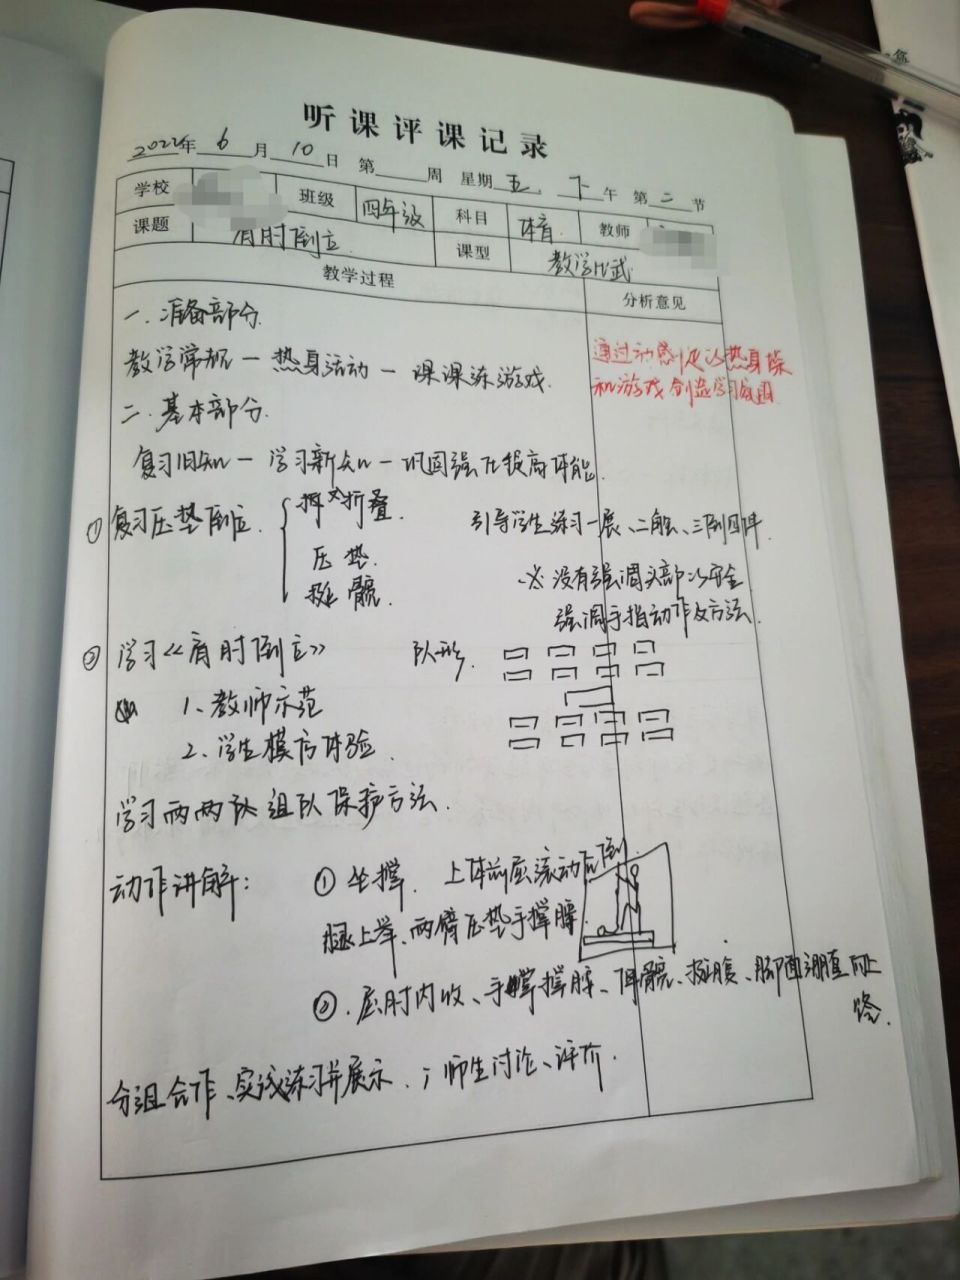 听课评课记录
2022年 6 月 10 日 第 周 星期 五 下 午 第 二 节
学校 班级 四年级 科目 体育 教师
课题 肩肘倒立 课型 教学比武
教学过程 分析意见
一、准备部分
教学常规—热身活动—课课练游戏
通过动感 热身操
和游戏创造学习氛围
二、基本部分
复习旧知—学习新知—巩固强化提高体能
① 复习压垫倒立 折叠
压垫
挺髋
引导学生练习一展、二触、三倒四
没有强调头部 安全
强调手指动作及方法
② 学习《肩肘倒立》 队形
1、教师示范
2、学生模仿体验
学习两两 组队保护方法
动作讲解: ① 坐撑、上体前屈滚动后倒
腿上举、两臂压垫手撑腰
② 屈肘内收、手 撑腰、伸髋、挺腹、脚面绷直向上
分组合作、实践练习并展示、师生讨论、评价